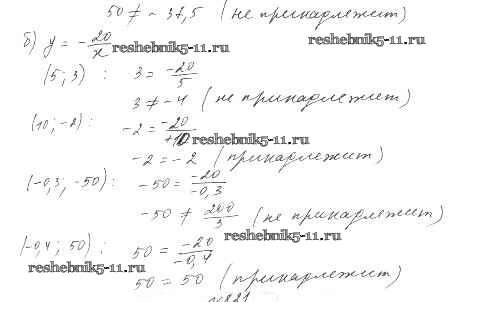 50 ≠ -37,5 (не принадлежит)
б) y = -20/x
reshebnik5-11.ru reshebnik5-11.ru
(5; 3) : 3 = -20/5
3 ≠ -4 (не принадлежит)
(10; -2) : -2 = -20/+10
reshebnik5-11.ru
-2 = -2 (принадлежит)
(-0,3; -50) : -50 = -20/-0,3
-50 ≠ 200/3 (не принадлежит)
reshebnik5-11.ru
(-0,4; 50) : 50 = -20/-0,4
reshebnik5-11.ru
50 = 50 (принадлежит)
№821